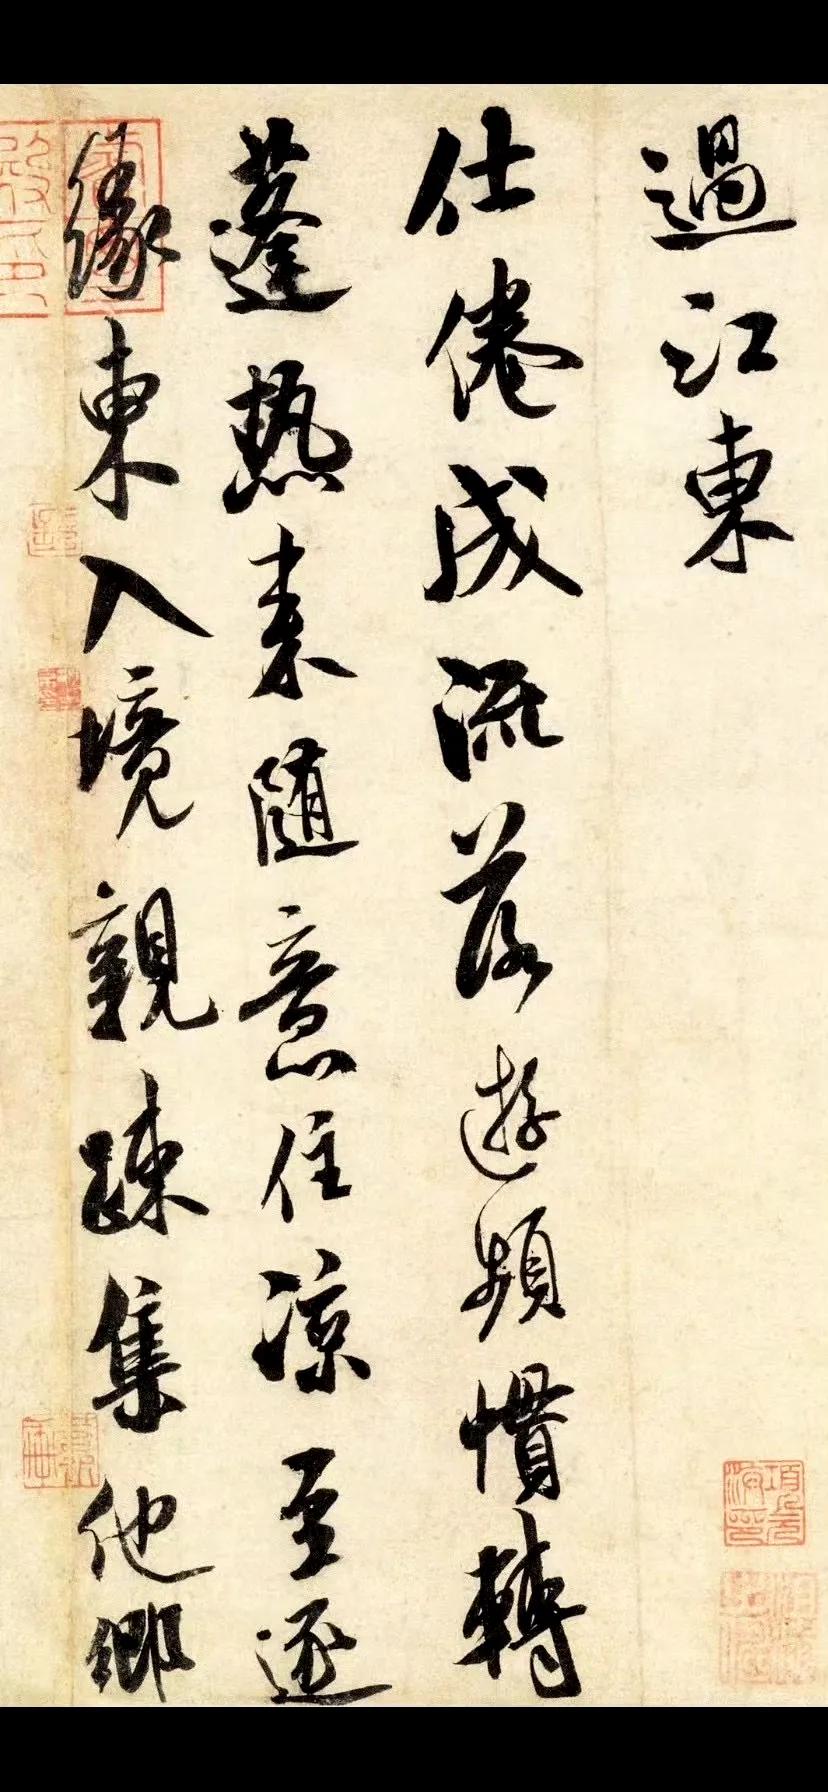 過江東
仕倦成流落遊頻慣轉
蓬熱來隨意住涼至逐
緣東入境親疎集他鄉